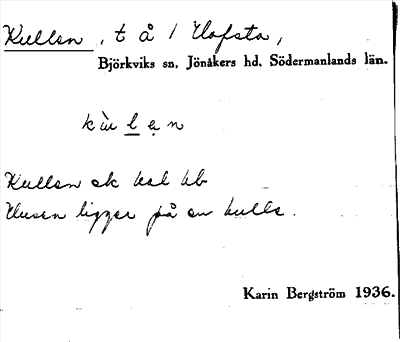 Kullen, t å / Hofsta,
Björkviks sn, Jönåkers hd, Södermanlands län.
kùlẹn
Kullen ek hsl hb
Husen ligger på en kulle.
Karin Bergström 1936.